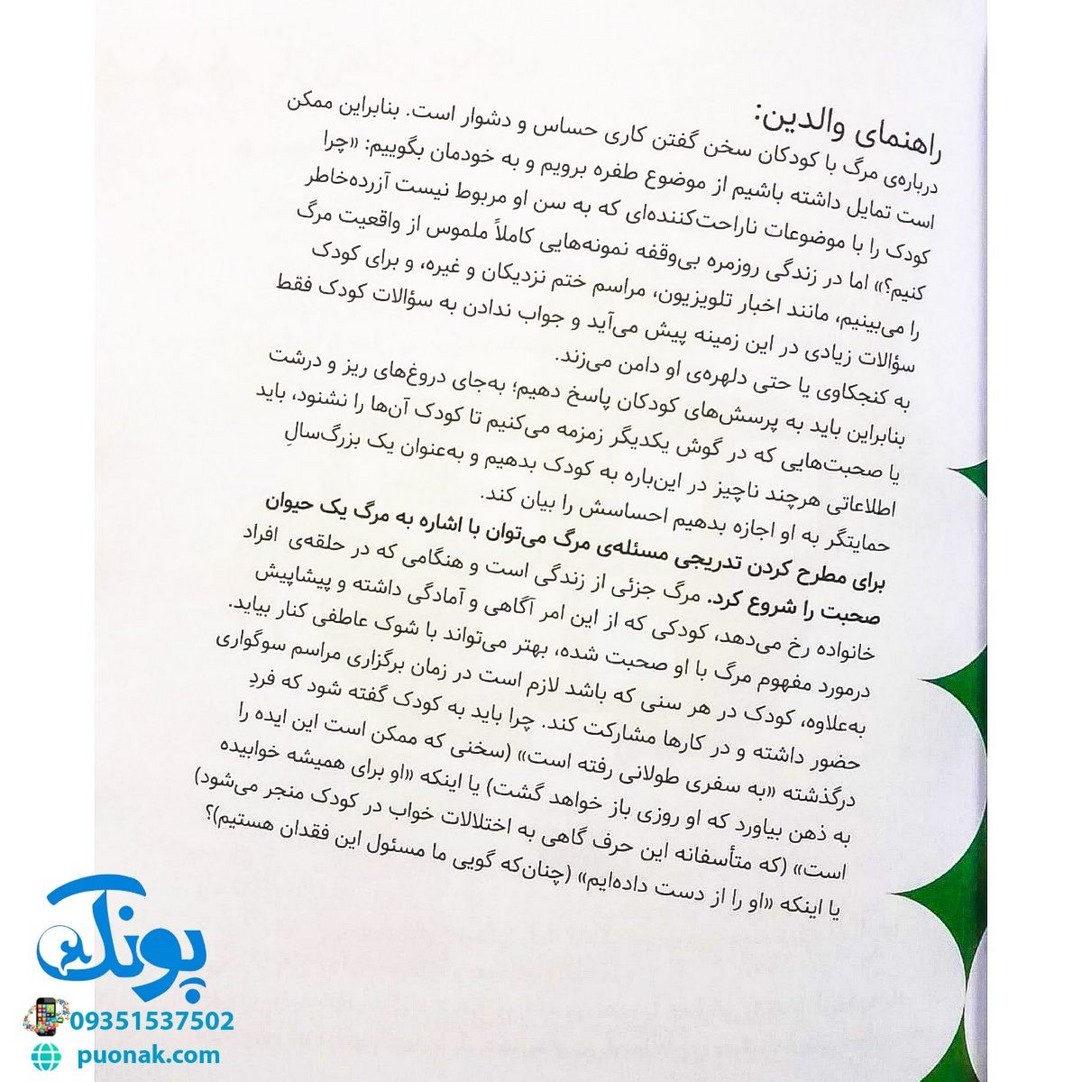 راهنمای والدین:
درباره‌ی مرگ با کودکان سخن گفتن کاری حساس و دشوار است. بنابراین ممکن
است تمایل داشته باشیم از موضوع طفره برویم و به خودمان بگوییم: «چرا
کودک را با موضوعات ناراحت‌کننده‌ای که به سن او مربوط نیست آزرده‌خاطر
کنیم؟» اما در زندگی روزمره بی‌وقفه نمونه‌هایی کاملاً ملموس از واقعیت مرگ
را می‌بینیم، مانند اخبار تلویزیون، مراسم ختم نزدیکان و غیره، و برای کودک
سؤالات زیادی در این زمینه پیش می‌آید و جواب ندادن به سؤالات کودک فقط
به کنجکاوی یا حتی دلهره‌ی او دامن می‌زند.
بنابراین باید به پرسش‌های کودکان پاسخ دهیم؛ به‌جای دروغ‌های ریز و درشت
یا صحبت‌هایی که در گوش یکدیگر زمزمه می‌کنیم تا کودک آن‌ها را نشنود، باید
اطلاعاتی هرچند ناچیز در این‌باره به کودک بدهیم و به‌عنوان یک بزرگ‌سالِ
حمایتگر به او اجازه بدهیم احساسش را بیان کند.
برای مطرح کردن تدریجی مسئله‌ی مرگ می‌توان با اشاره به مرگ یک حیوان
صحبت را شروع کرد. مرگ جزئی از زندگی است و هنگامی که در حلقه‌ی افراد
خانواده رخ می‌دهد، کودکی که از این امر آگاهی و آمادگی داشته و پیشاپیش
درمورد مفهوم مرگ با او صحبت شده، بهتر می‌تواند با شوک عاطفی کنار بیاید.
به‌علاوه، کودک در هر سنی که باشد لازم است در زمان برگزاری مراسم سوگواری
حضور داشته و در کارها مشارکت کند. چرا باید به کودک گفته شود که فردِ
درگذشته «به سفری طولانی رفته است» (سخنی که ممکن است این ایده را
به ذهن بیاورد که او روزی باز خواهد گشت) یا اینکه «او برای همیشه خوابیده
است» (که متأسفانه این حرف گاهی به اختلالات خواب در کودک منجر می‌شود)
یا اینکه «او را از دست داده‌ایم» (چنان‌که گویی ما مسئول این فقدان هستیم)؟
پونک
09351537502
puonak.com